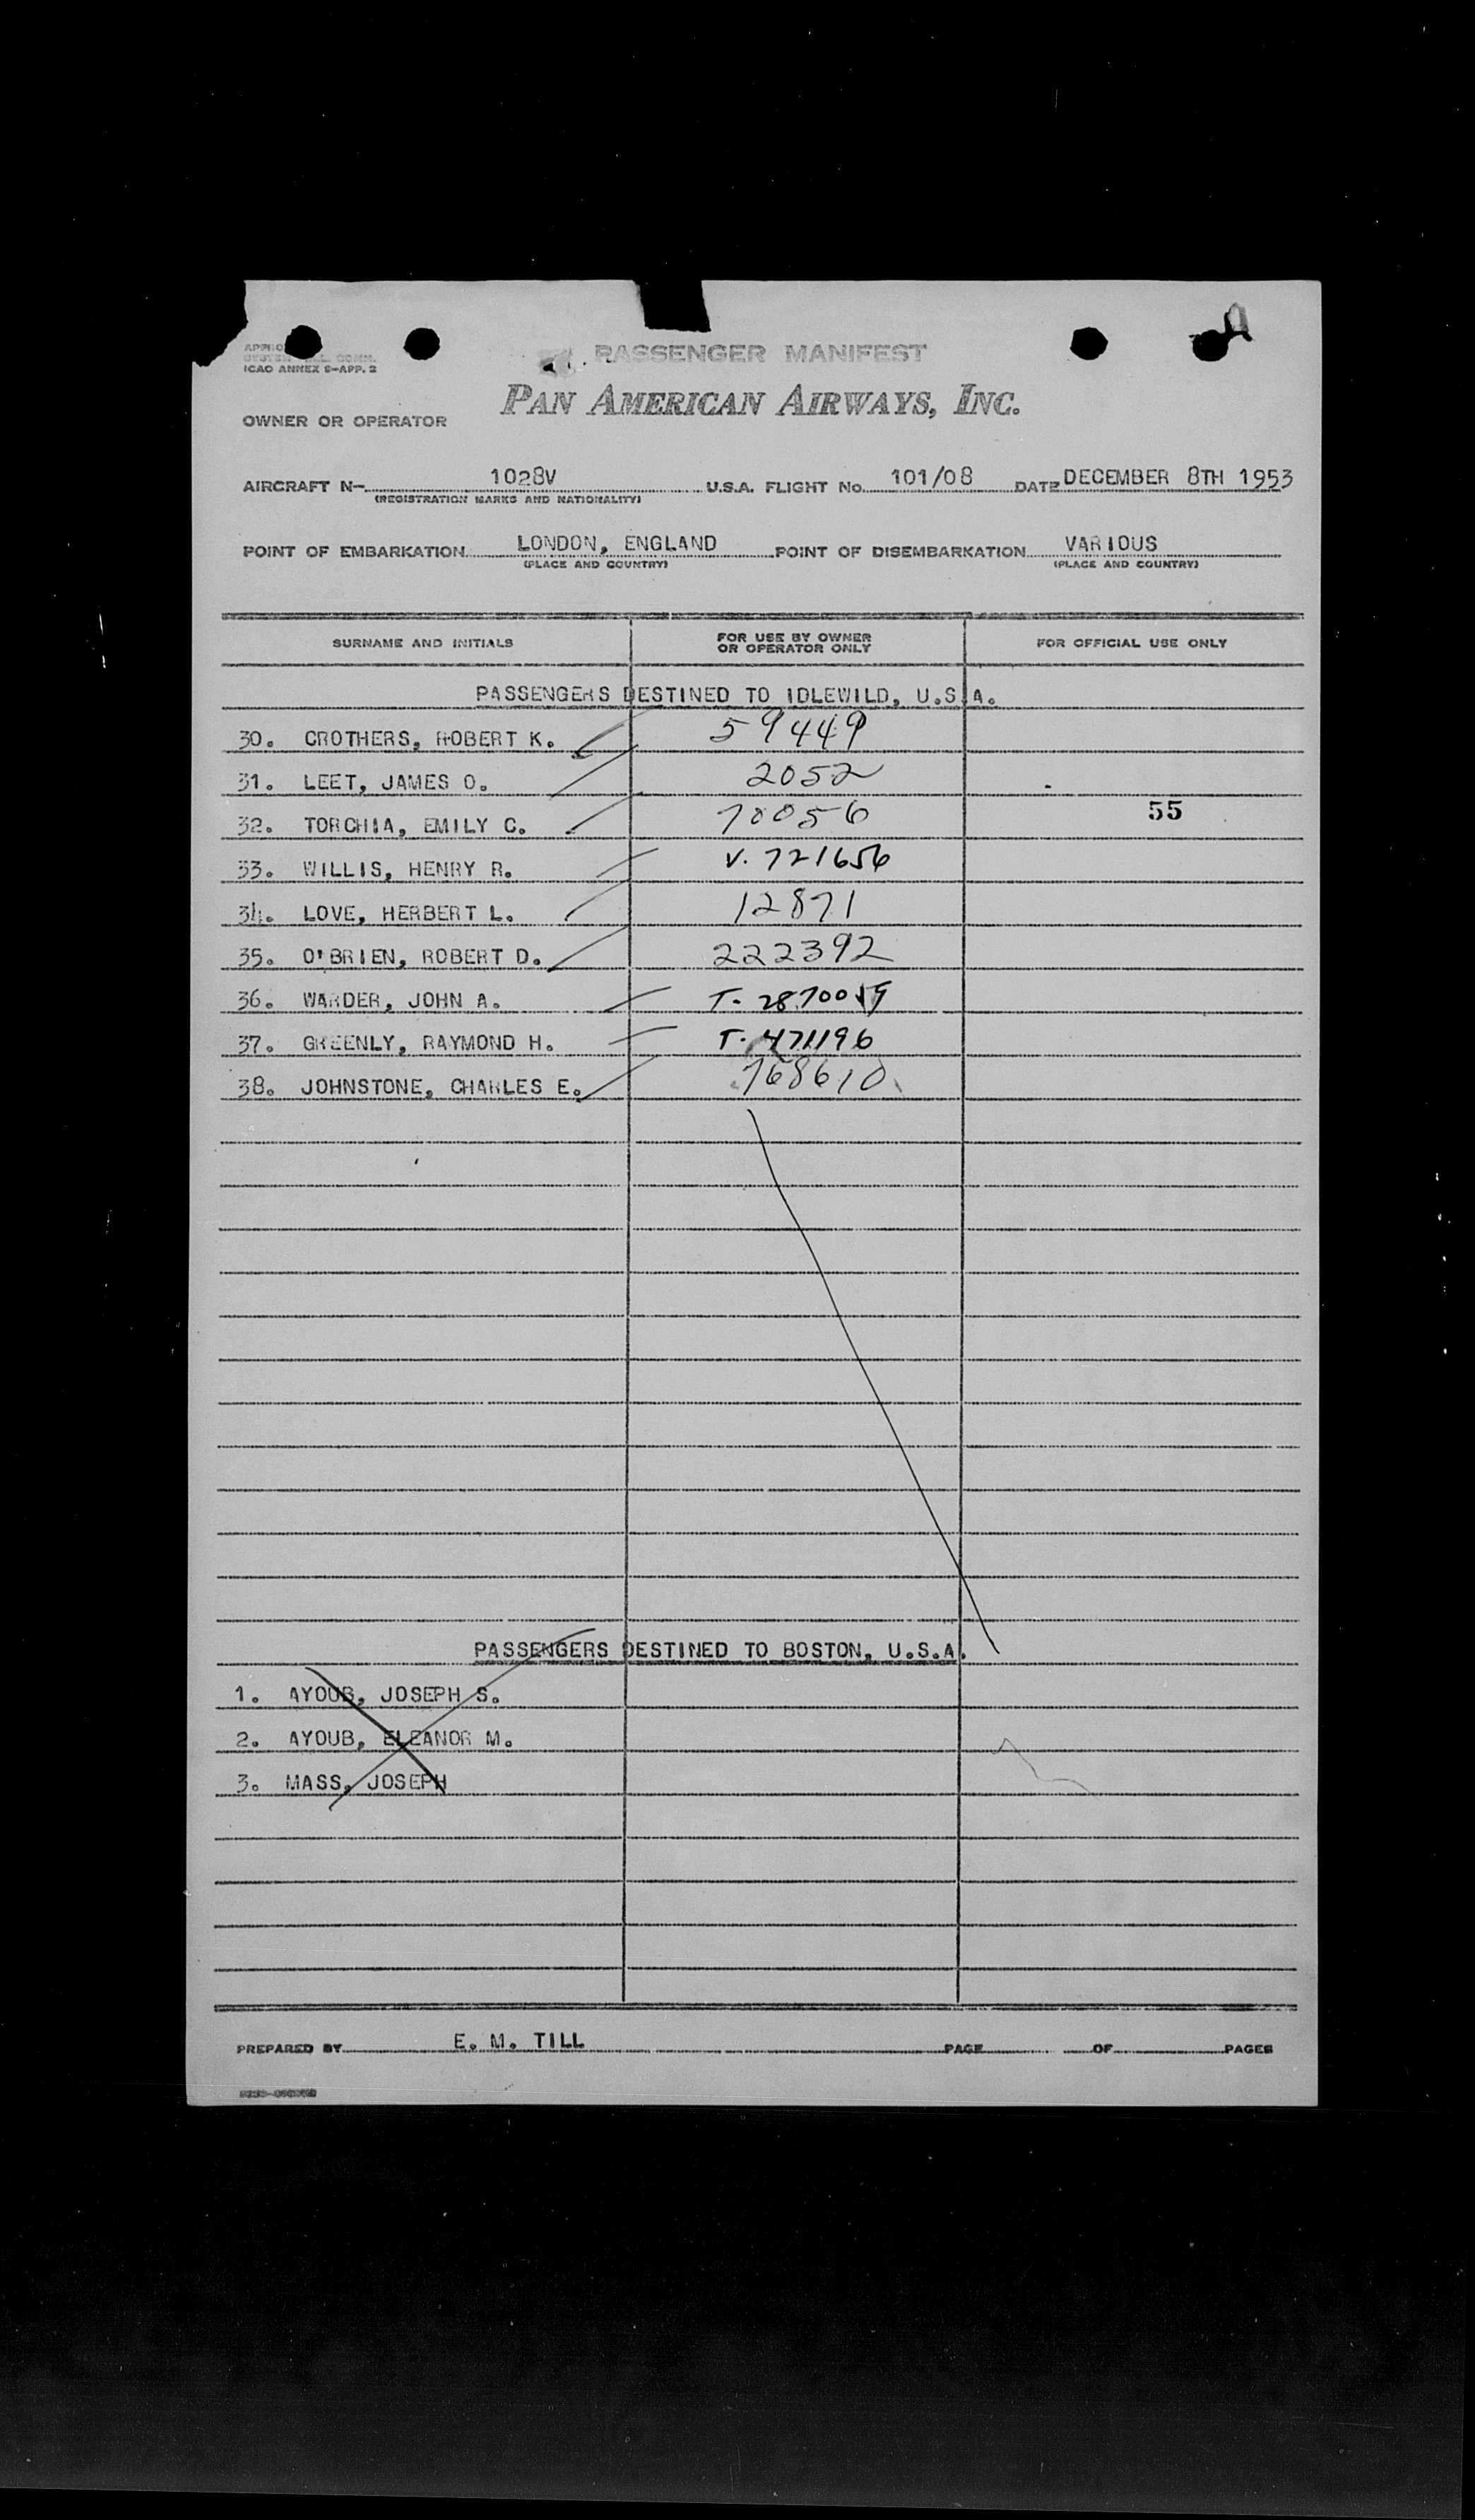 ICAO ANNEX 9-APP. 2
PASSENGER MANIFEST
PAN AMERICAN AIRWAYS, INC.
OWNER OR OPERATOR
AIRCRAFT N- 1028V U.S.A. FLIGHT No. 101/08 DATE DECEMBER 8TH 1953
(REGISTRATION MARKS AND NATIONALITY)
POINT OF EMBARKATION LONDON, ENGLAND POINT OF DISEMBARKATION VARIOUS
(PLACE AND COUNTRY) (PLACE AND COUNTRY)
SURNAME AND INITIALS FOR USE BY OWNER OR OPERATOR ONLY FOR OFFICIAL USE ONLY
PASSENGERS DESTINED TO IDLEWILD, U.S.A.
30. CROTHERS, ROBERT K. 59449
31. LEET, JAMES O. 2052
32. TORCHIA, EMILY C. 70056 55
33. WILLIS, HENRY R. V. 721656
34. LOVE, HERBERT L. 12871
35. O'BRIEN, ROBERT D. 222392
36. WARDER, JOHN A.
37. GREENLY, RAYMOND H. T. 471196
38. JOHNSTONE, CHARLES E. 768610
PASSENGERS DESTINED TO BOSTON, U.S.A.
1. AYOUB, JOSEPH S.
2. AYOUB, ELEANOR M.
3. MASS, JOSEPH
PREPARED BY E. M. TILL PAGE OF PAGES